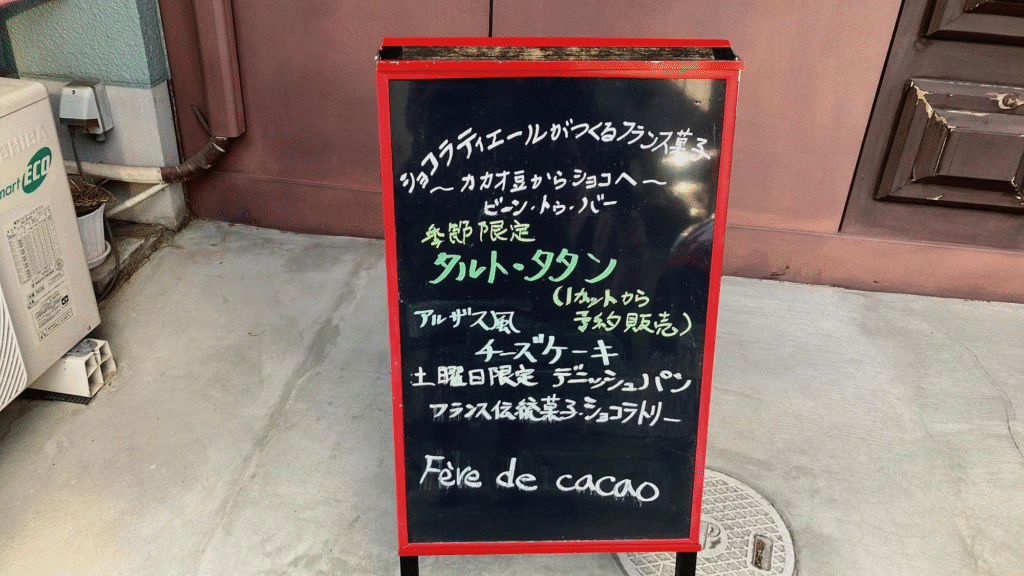 ショコラティエールがつくるフランス菓子
～カカオ豆からショコへ～
ビーン・トゥ・バー
季節限定
タルト・タタン
(1カットから
予約販売)
アルザス風
チーズケーキ
土曜日限定 デニッシュパン
フランス伝統菓子・ショコラトリー
Fève de cacao
SHIBA
mart ECO